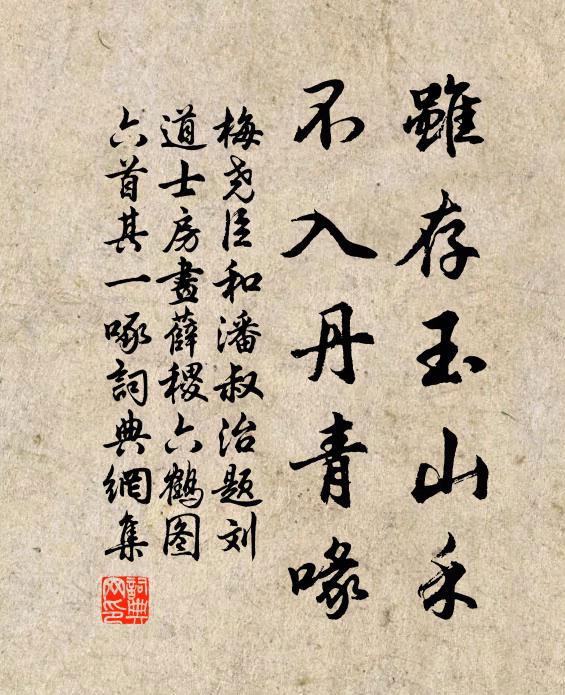 雖存玉山禾
不入丹青喙
梅尧臣和潘叔治题刘
道士房畫薛稷六鶴图
六首其一啄詞典網集
詞典网印